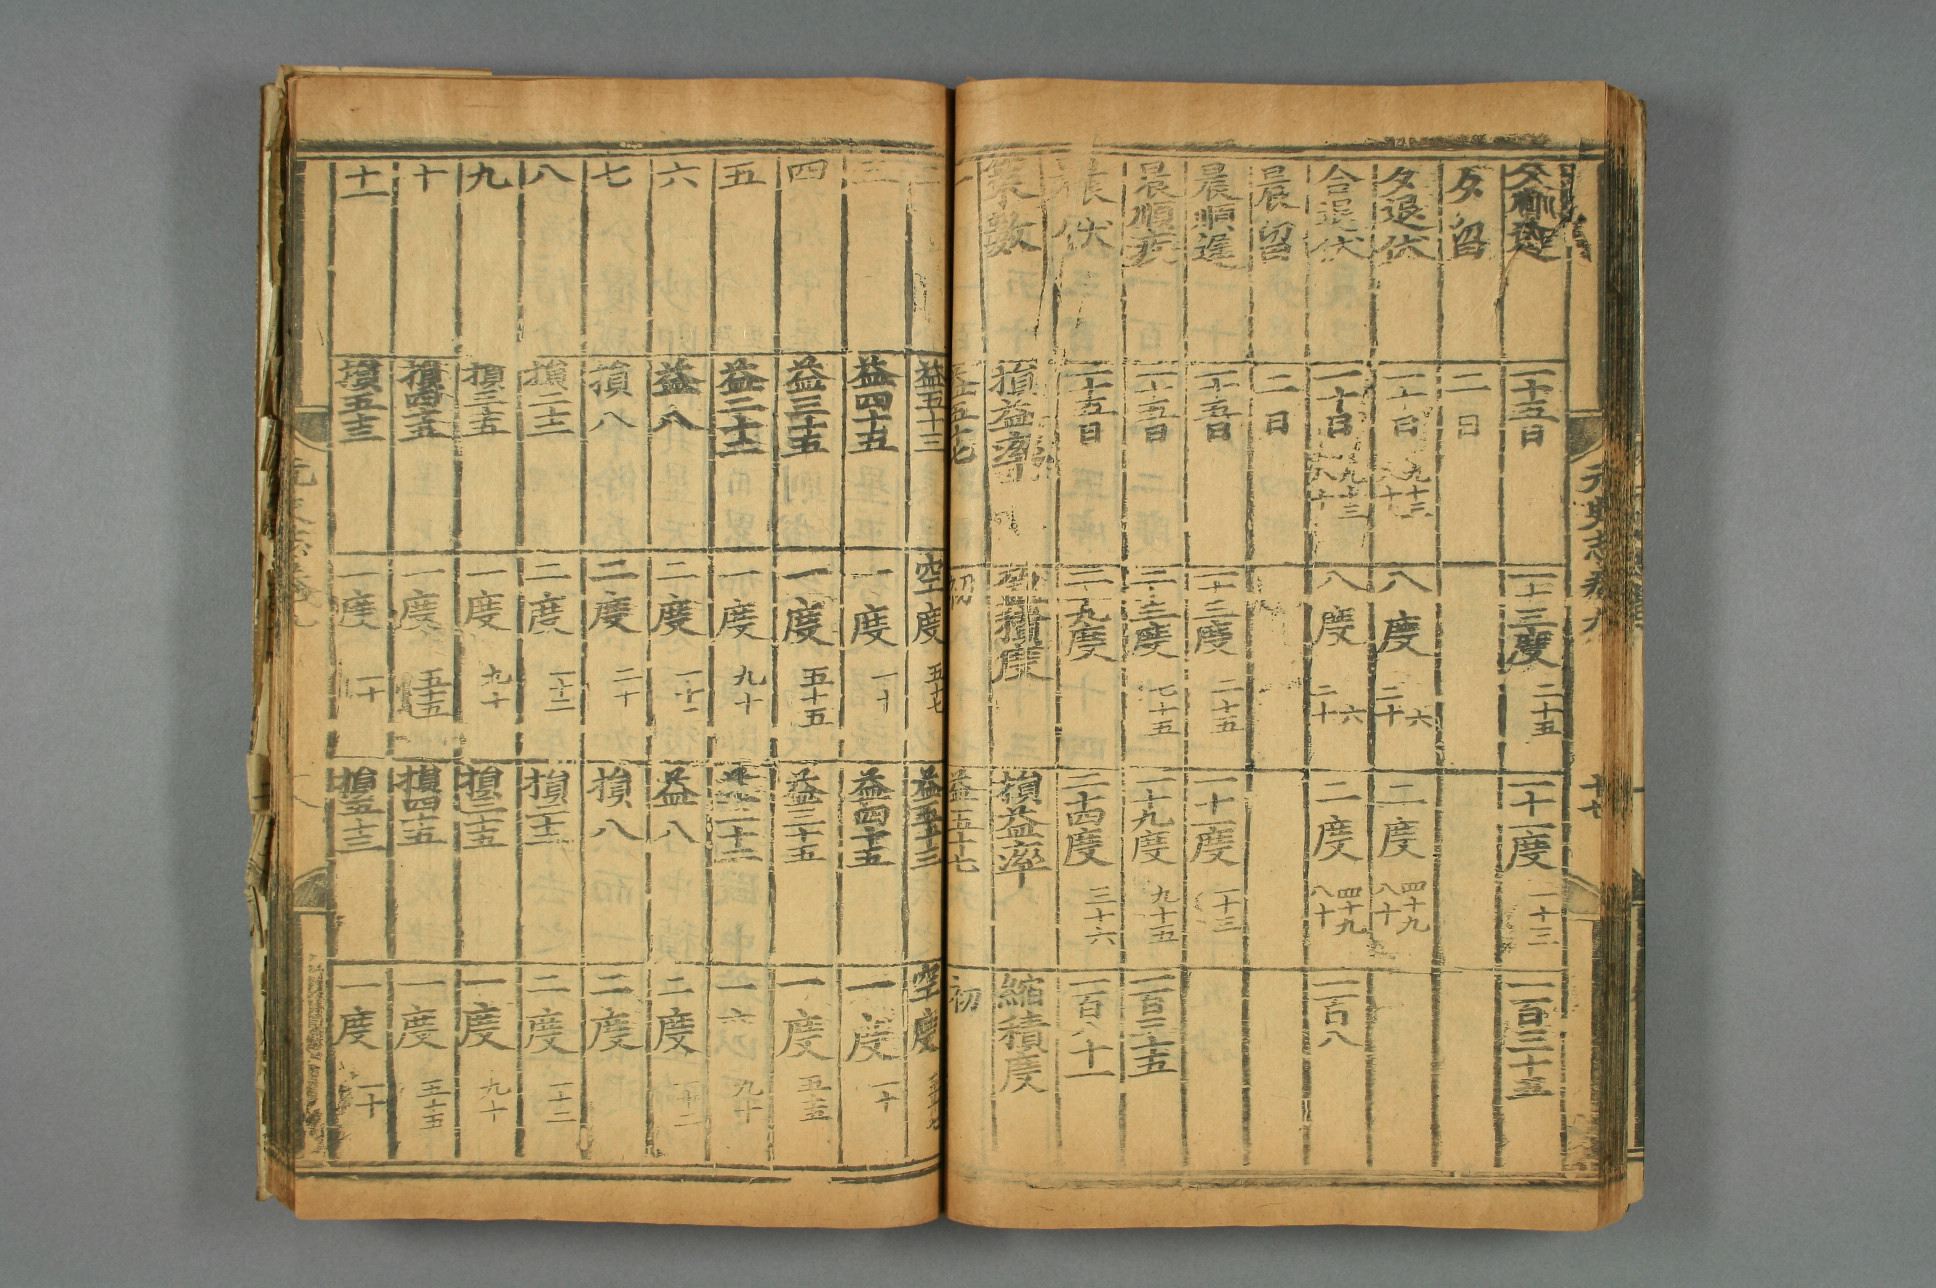 元史志卷九
十七
夕順遲 十五日 一十三度 二十五 一十一度 一十三 一百三十五
夕留 二日
夕退伏 一十日 九十三 八十 八度 二十 六 二度 四十九 八十
合退伏 一十日 九十三 八十 八度 二十 六 二度 四十九 八十 一百八
晨留 二日
晨順遲 一十五日 一十三度 二十五 一十一度 一十三
晨順疾 一十五日 二十三度 七十五 一十九度 九十五 一百三十五
晨伏 一十五日 二十九度 二十四度 三十六 一百八十一
策數 損益率 盈積度 損益率 縮積度
一 益五十七 初 益五十七 初
二 益五十三 空度 五十七 益五十三 空度
三 益四十五 一度 一十 益四十五 一度 一十
四 益三十五 一度 五十五 益三十五 一度 五十五
五 益二十二 一度 九十 益二十二 一 九十
六 益八 二度 一十二 益八 二度 一十二
七 損八 二度 二十 損八 二度
八 損二十二 二度 一十二 損二十二 二度 一十二
九 損三十五 一度 九十 損三十五 一度 九十
十 損四十五 一度 五十五 損四十五 一度 五十五
十一 損五十三 一度 一十 損五十三 一度 一十